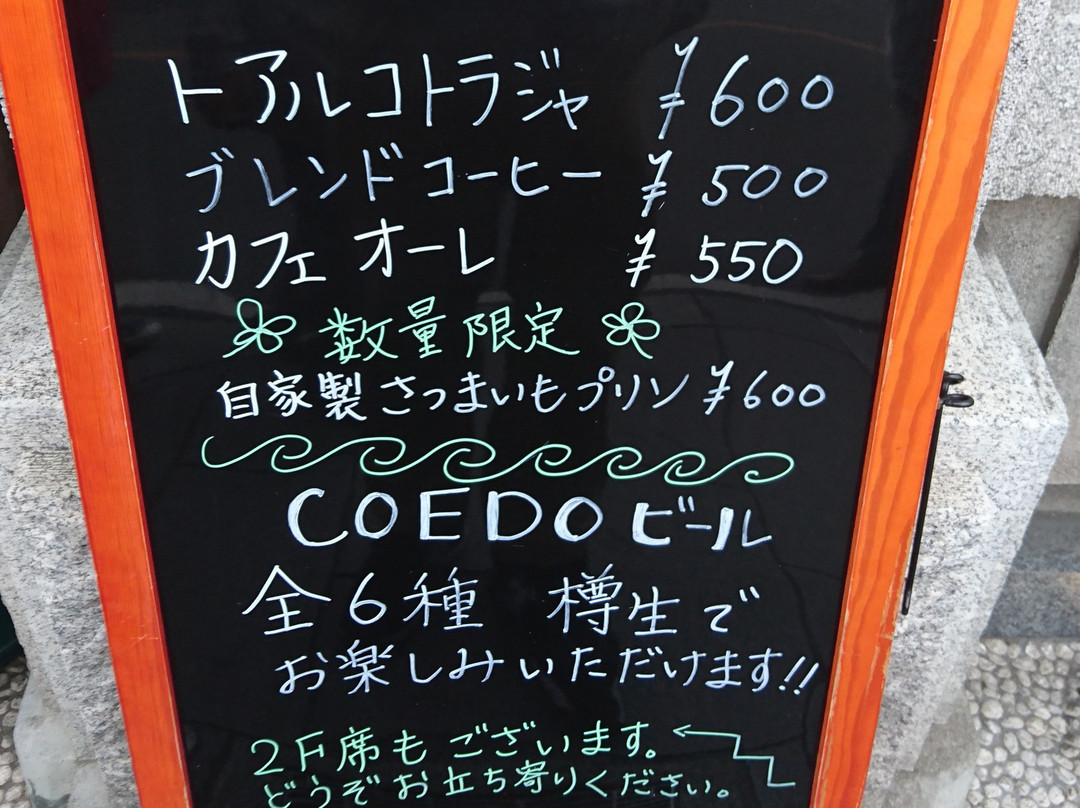 トアルコトラジャ ¥600
ブレンドコーヒー ¥500
カフェオーレ ¥550
数量限定
自家製さつまいもプリン ¥600
COEDOビール
全6種 樽生で
お楽しみいただけます!!
2F席もございます。
どうぞお立ち寄りください。